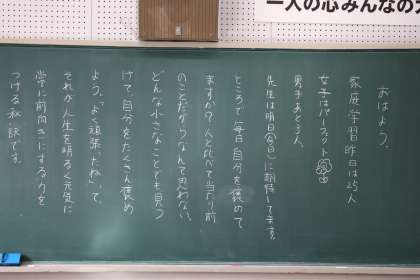 一人の心みんなの
おはよう。
家庭学習昨日は25人
女子はパーフェクト
男子あと3人。
先生は明日(今日)に期待してます。
ところで毎日自分を褒めて
ますか?人と比べて当たり前
のことだからなんて思わない、
どんな小さなことでも見つ
けて、自分をたくさん褒め
よう。「よく頑張ったね」って、
それが人生を明るく元気に
常に前向きにする力を
つける秘訣です。